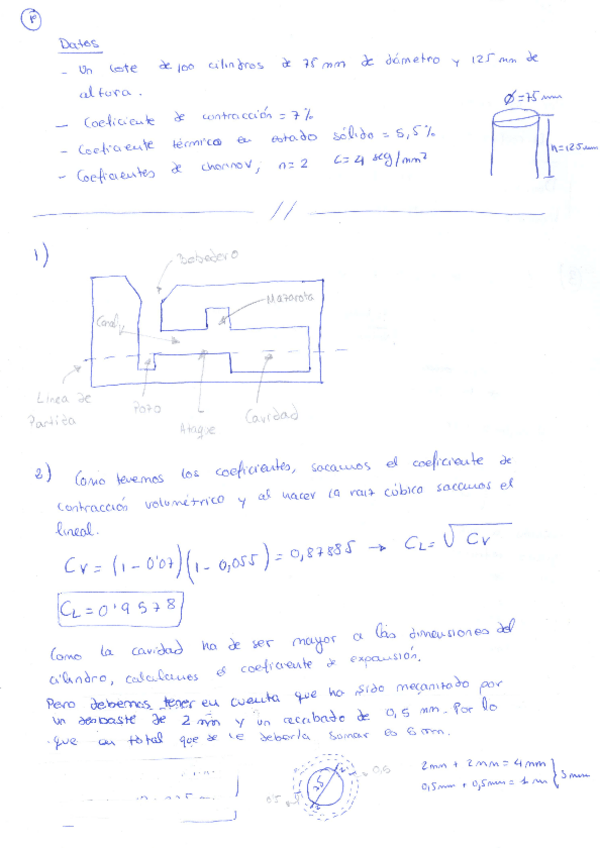 Datos
- Un lote de 100 cilindros de 75 mm de diámetro y 125 mm de
altura.
- Coeficiente de contracción = 7%
- Coeficiente térmico en estado sólido = 5,5%
- Coeficientes de chorinov; n=2 C=4 seg/mm²
Ø=75 mm
h=125 mm
//
1)
Bebedero
Mazarota
Canal
Línea de
Partida
Pozo
Ataque
Cavidad
2) Como tenemos los coeficientes, sacamos el coeficiente de
contracción volumétrico y al hacer la raiz cúbico sacamos el
lineal.
Cv = (1 - 0'07)(1 - 0,055) = 0,87885 → CL = √Cv
CL = 0'9578
Como la cavidad ha de ser mayor a las dimensiones del
cilindro, calculamos el coeficiente de expansión.
Pero debemos tener en cuenta que ha sido mecanizado por
un desbaste de 2 mm y un acabado de 0,5 mm. Por lo
que en total que se le debería sumar es 5 mm.
75
2
2
0,5
0,5
2mm + 2mm = 4mm
0,5mm + 0,5mm = 1 m
5mm